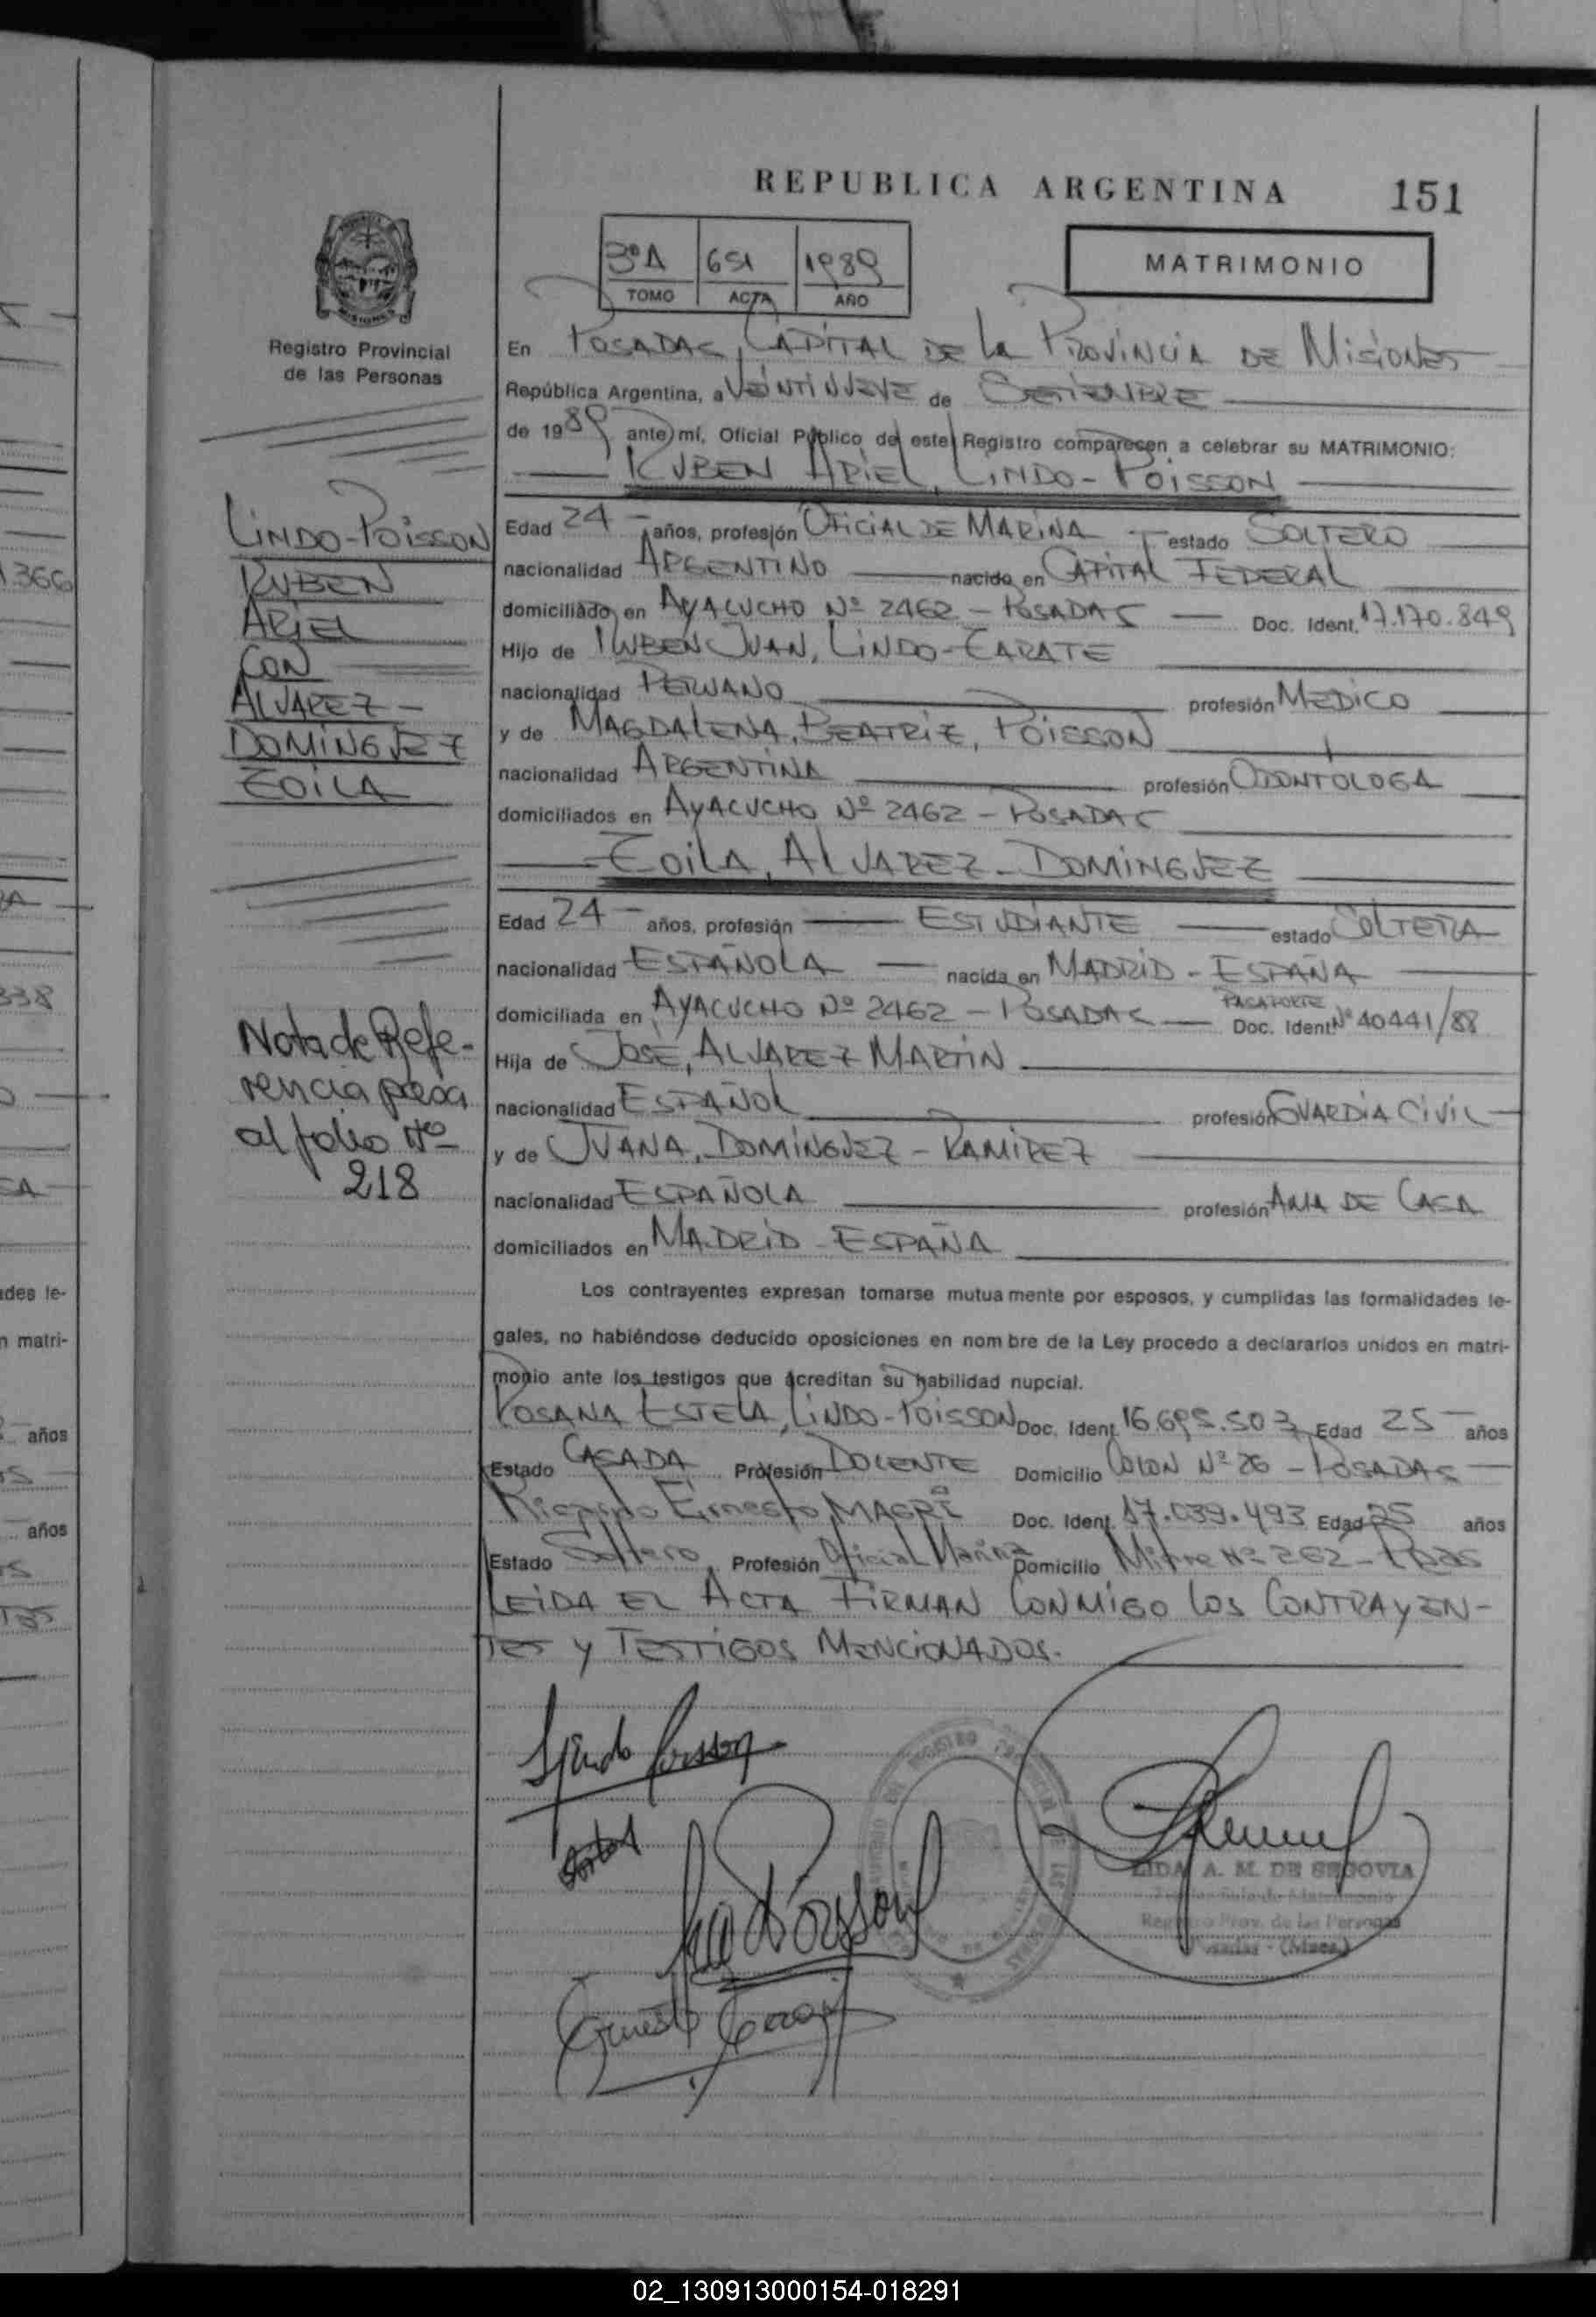 REPUBLICA ARGENTINA 151
3ºA 651 1989
TOMO ACTA AÑO
MATRIMONIO
Registro Provincial
de las Personas
En POSADAS, CAPITAL DE LA PROVINCIA DE MISIONES
República Argentina, a VEINTINUEVE de SETIEMBRE
de 1989 ante mí, Oficial Público de este Registro comparecen a celebrar su MATRIMONIO:
RUBEN ARIEL, LINDO-POISSON
Edad 24 años, profesión OFICIAL DE MARINA estado SOLTERO
nacionalidad ARGENTINO nacido en CAPITAL FEDERAL
domiciliado en AYACUCHO Nº 2462 - POSADAS Doc. Ident. 17.170.849
Hijo de RUBEN JUAN, LINDO-ZARATE
nacionalidad PERUANO profesión MEDICO
y de MAGDALENA, BEATRIZ, POISSON
nacionalidad ARGENTINA profesión ODONTOLOGA
domiciliados en AYACUCHO Nº 2462 - POSADAS
ZOILA, ALVAREZ-DOMINGUEZ
Edad 24 años, profesión ESTUDIANTE estado SOLTERA
nacionalidad ESPAÑOLA nacida en MADRID - ESPAÑA
domiciliada en AYACUCHO Nº 2462 - POSADAS PASAPORTE Doc. Ident. Nº 40441/88
Hija de JOSE, ALVAREZ MARTIN
nacionalidad ESPAÑOL profesión GUARDIA CIVIL
y de JUANA, DOMINGUEZ - RAMIREZ
nacionalidad ESPAÑOLA profesión AMA DE CASA
domiciliados en MADRID - ESPAÑA
Los contrayentes expresan tomarse mutuamente por esposos, y cumplidas las formalidades le-
gales, no habiéndose deducido oposiciones en nombre de la Ley procedo a declararlos unidos en matri-
monio ante los testigos que acreditan su habilidad nupcial.
ROSANA ESTELA, LINDO-POISSON Doc. Ident. 16.695.503 Edad 25 años
Estado CASADA Profesión DOCENTE Domicilio COLON Nº 26 - POSADAS
Ricardo Ernesto MAGRI Doc. Ident. 17.039.493 Edad 25 años
Estado Soltero Profesión Oficial Marina Domicilio Mitre Nº 262 - Pdas
LEIDA EL ACTA FIRMAN CONMIGO LOS CONTRAYEN-
TES Y TESTIGOS MENCIONADOS.
LINDO-POISSON
RUBEN
ARIEL
CON
ALVAREZ-
DOMINGUEZ
ZOILA
Nota de Refe-
rencia pasa
al folio Nº
218
LIDA A. M. DE SEGOVIA
Registro Prov. de las Personas
Posadas - (Mnes.)
1366
338
ades le-
n matri-
años
años
02_130913000154-018291